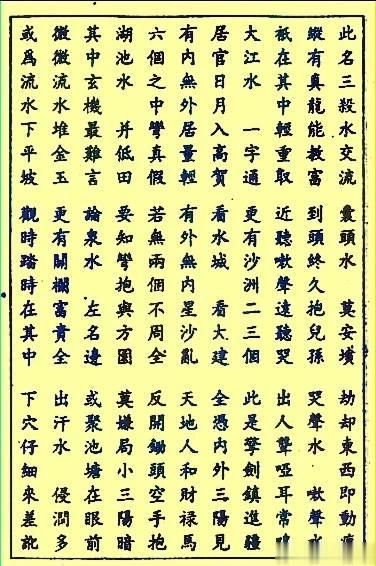 此名三殺水交流 裊頭水 莫安墳 劫却東西即動
蹤有真龍能救富 到頭終久抱兒孫 哭聲水 嗽聲水
祇在其中輕重取 近聽嗽聲遠聽哭 出人聾啞耳常鳴
大江水 一字通 更有沙洲二三個 此是擎劍鎮進疆
居官日月入高賀 看水城 看大建 全憑內外三陽見
有內無外居量輕 有外無內星沙亂 天地人和財祿馬
六個之中彎真假 若無兩個不周全 反開鋤頭空手抱
湖池水 并低田 要知彎抱與方圓 莫嫌局小三陽暗
其中玄機最難言 論泉水 左名邊 或聚池塘在眼前
微微流水堆金玉 更有開欄富貴全 出汗水 侵潤多
或爲流水下平坡 觀時踏時在其中 下穴仔細來差訛